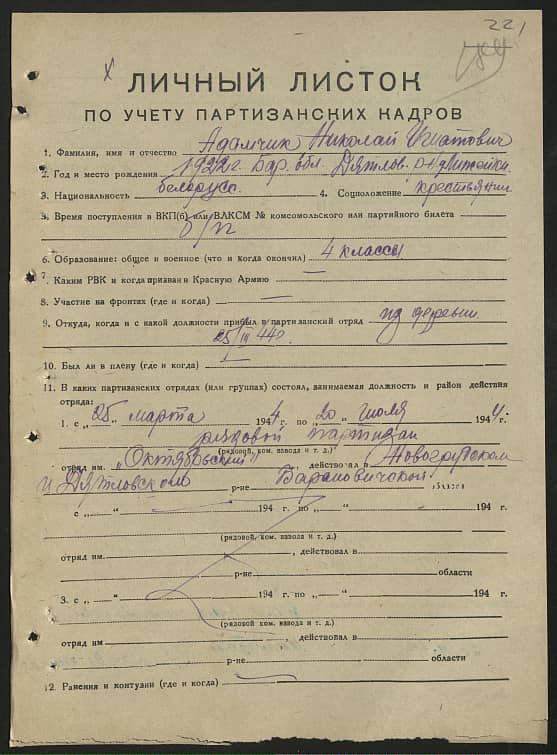 221
х
ЛИЧНЫЙ ЛИСТОК
ПО УЧЕТУ ПАРТИЗАНСКИХ КАДРОВ
1. Фамилия, имя и отчество Адамчик Николай Игнатович
2. Год и место рождения 1922 г. Бар. обл. Дятлов. р-н
3. Национальность белорусс. 4. Соцположение крестьянин
5. Время поступления в ВКП(б) или ВЛКСМ № комсомольского или партийного билета
б/п
6. Образование: общее и военное (что и когда окончил) 4 классы
7. Каким РВК и когда призван в Красную Армию —
8. Участие на фронтах (где и когда) —
9. Откуда, когда и с какой должности прибыл в партизанский отряд из деревни
25/III 44 г.
10. Был ли в плену (где и когда) —
11. В каких партизанских отрядах (или группах) состоял, занимаемая должность и район действия
отряда:
1. с „25" марта 1944 г. по „20" июля 1944 г.
рядовой партизан
(рядовой, ком. взвода и т. д.)
отряд им. „Октябрьский", действовал в Новогрудском
и Дятловском р-не Барановичской области
с „ — " 194 г. по „ — " 194 г.
(рядовой, ком. взвода и т. д.)
отряд им. , действовал в
р-не области
3. с „ — " 194 г. по „ — " 194 г.
(рядовой, ком. взвода и т. д.)
отряд им. , действовал в
р-не области
12. Ранения и контузии (где и когда) —